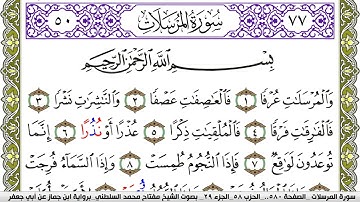 ٥٠ سُورَةُ المُرْسَلَات ٧٧
بِسْمِ اللَّهِ الرَّحْمَٰنِ الرَّحِيمِ
وَالْمُرْسَلَاتِ عُرْفًا ١ فَالْعَاصِفَاتِ عَصْفًا ٢ وَالنَّاشِرَاتِ نَشْرًا ٣
فَالْفَارِقَاتِ فَرْقًا ٤ فَالْمُلْقِيَاتِ ذِكْرًا ٥ عُذْرًا أَوْ نُذُرًا ٦ إِنَّمَا
تُوعَدُونَ لَوَاقِعٌ ٧ فَإِذَا النُّجُومُ طُمِسَتْ ٨ وَإِذَا السَّمَاءُ فُرِجَتْ
سورة المرسلات .. الصفحة ٥٨٠ .. الحزب ٥٨ .. الجزء ٢٩ .. بصوت الشيخ مفتاح محمد السلطني .. برواية ابن جماز عن أبي جعفر